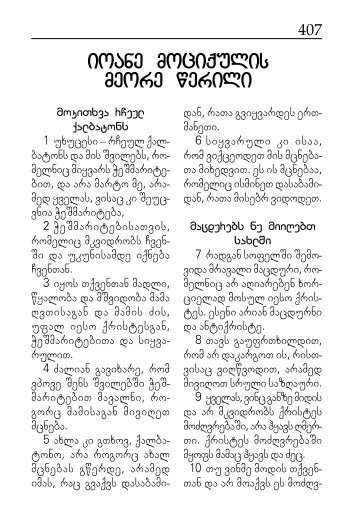 407
იოანე მოციქულის
მეორე წერილი
მოკითხვა რჩეულ
ქალბატონს
1 უხუცესი – რჩეულ ქალ-
ბატონს და მის შვილებს, რო-
მელნიც მიყვარს ჭეშმარიტე-
ბით, და არა მარტო მე, არა-
მედ ყველას, ვისაც კი შეუც-
ვნია ჭეშმარიტება,
2 ჭეშმარიტებისათვის,
რომელიც მკვიდრობს ჩვენ-
ში და უკუნისამდე იქნება
ჩვენთან.
3 იყოს თქვენთან მადლი,
წყალობა და მშვიდობა მამა
ღვთისაგან და მამის ძის,
უფალ იესო ქრისტესგან,
ჭეშმარიტებითა და სიყვა-
რულით.
4 ძალიან გავიხარე, რომ
ვპოვე შენს შვილებში ჭეშ-
მარიტებით მავალნი, რო-
გორც მამისაგან მივიღეთ
მცნება.
5 ახლა კი გთხოვ, ქალბა-
ტონო, არა როგორც ახალ
მცნებას გწერდე, არამედ
იმას, რაც გვაქვს დასაბამი-
დან, რათა გვიყვარდეს ერთ-
მანეთი.
6 სიყვარული კი ისაა,
რომ ვიქცეოდეთ მის მცნება-
თა მიხედვით. ეს ის მცნებაა,
რომელიც ისმინეთ დასაბამი-
დან, რათა მისებრ ვიდოდეთ.
მაცდურებს ნუ მიიღებთ
სახლში
7 რადგან სოფელში შემო-
ვიდა მრავალი მაცდური, რო-
მელნიც არ აღიარებენ ხორ-
ციელად მოსულ იესო ქრის-
ტეს. ესენი არიან მაცდურნი
და ანტიქრისტე.
8 თავს გაუფრთხილდით,
რომ არ დაკარგოთ ის, რისთ-
ვისაც ვიღწვოდით, არამედ
მივიღოთ სრული საზღაური.
9 ყველას, ვინც განზე მიდის
და არ მკვიდრობს ქრისტეს
მოძღვრებაში, არა ჰყავს ღმერ-
თი. ქრისტეს მოძღვრებაში
მყოფს მამაც ჰყავს და ძეც.
10 თუ ვინმე მოდის თქვენ-
თან და არ მოაქვს ეს მოძღვ-